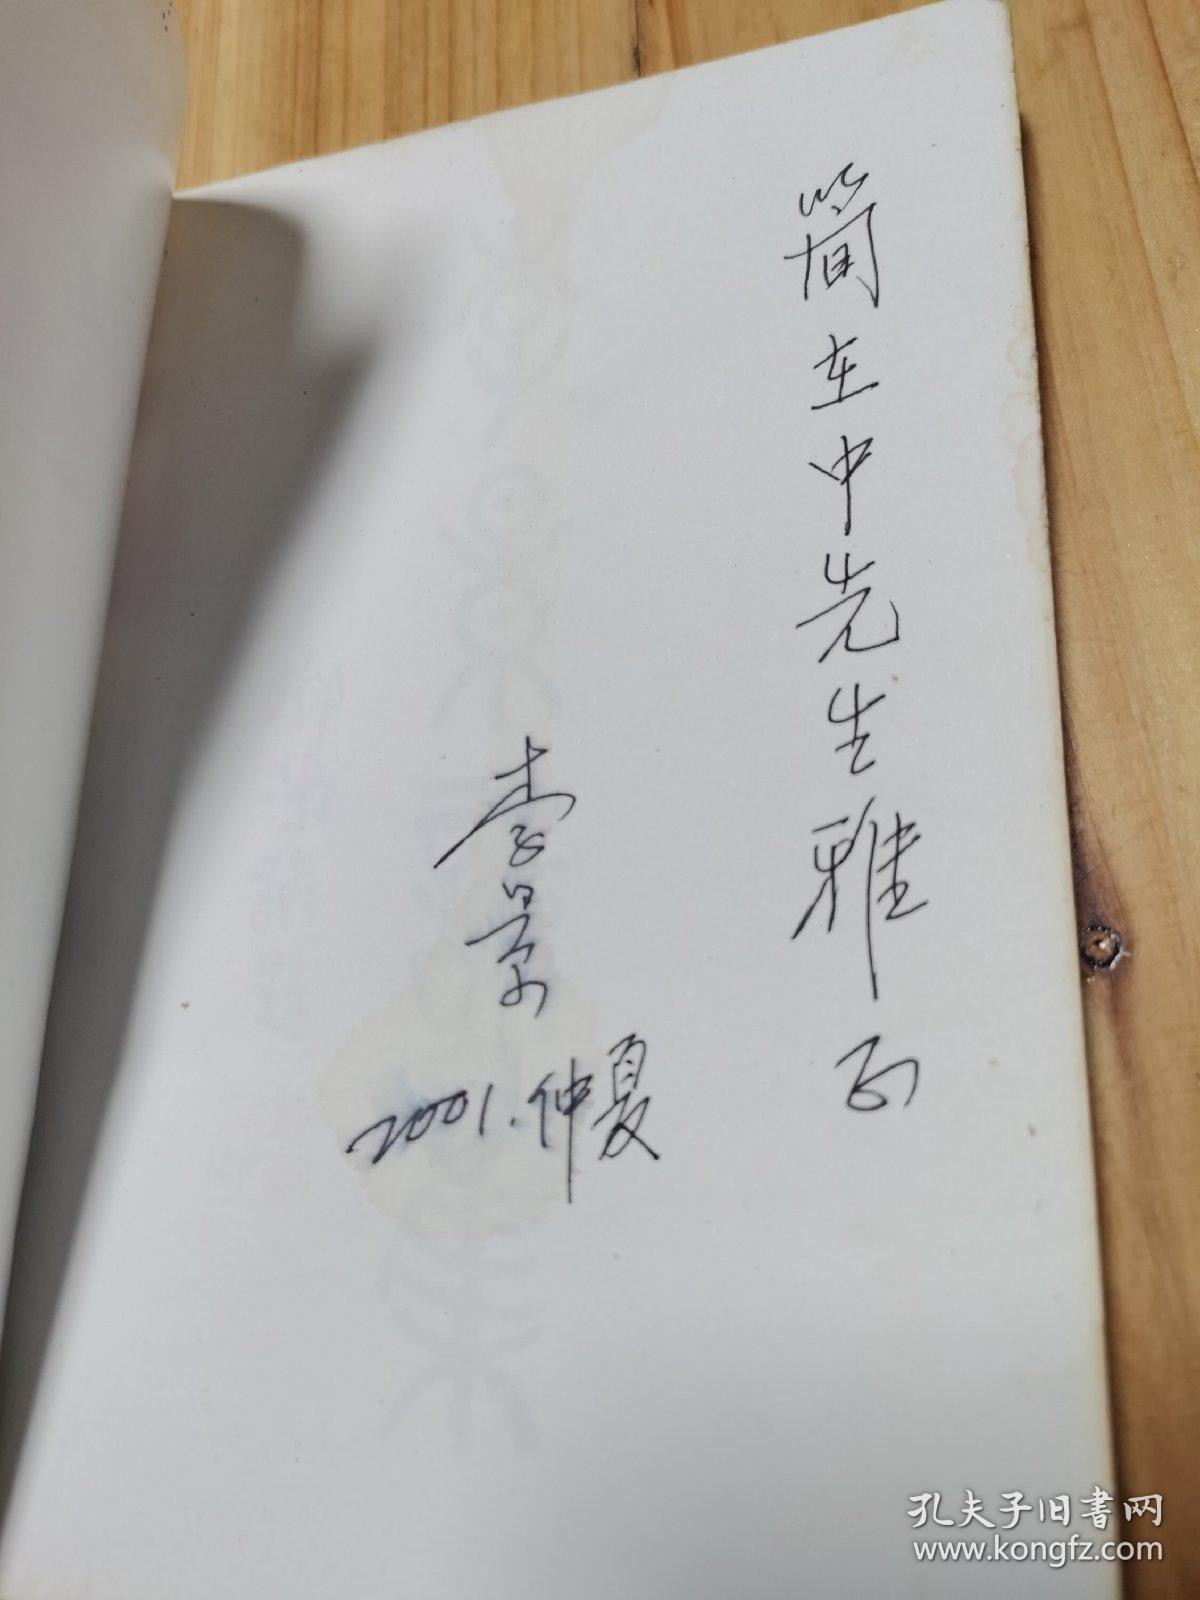 简在中先生雅正
李景
2001.仲夏
孔夫子旧書网
www.kongfz.com